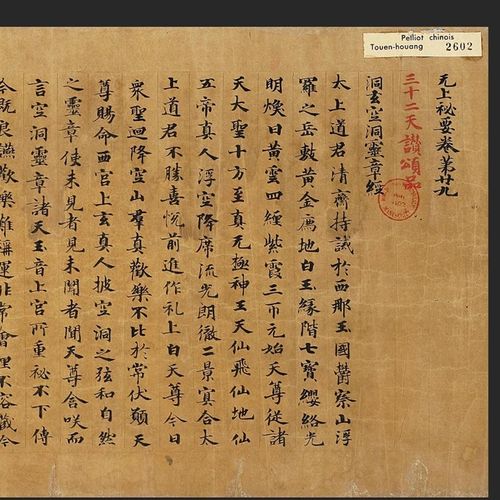 Pelliot chinois
Touen-houang 2602
无上秘要卷第廿九
三十二天讃頌品
洞玄空洞靈章經
太上道君清齋持誡於西那玉國欝察山浮
羅之岳敷黃金為地白玉緣階七寶纓絡光
明煥日黃雲四經紫霞三帀元始天尊從諸
天大聖十方至真无極神王天仙飛仙地仙
五帝真人浮空降席流光朗徹二景冥合太
上道君不勝喜悅前進作礼上白天尊今日
衆聖迴降空山羣真歡樂不比於常伏願天
尊賜命西宮上玄真人披空洞之弦和自然
之靈章使未見者見未聞者聞天尊含咲而
言空洞靈章諸天玉音上宮所重秘不下傳
今既良讌歡樂難稱運非常會理不容蘵令